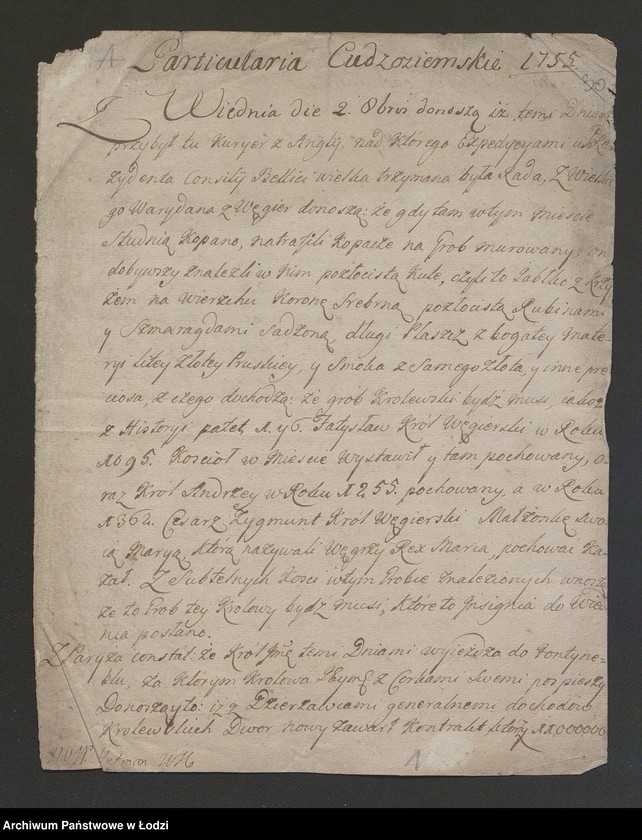 Particularia Cudzoziemskie 1755
Z Wiednia die 2. 8bris donoszą iż temi Dniami
przybył tu Kuryer z Anglij, nad ktorego Expedycyami u
zydenta Consilij Bellici wielka trzymana była Rada, Z Wielkie
go Warydana z Węgier donoszą: że gdy tam w tym Mieście
Studnią kopano, natrafili Kopacze na Grob murowany,
dobywszy znalezli w nim pozłocistą Kulę, czyli to Jabłko z Krzy
żem na wierzchu Koronę Srebrną, pozłocistą Rubinami
y Szmaragdami sadzoną, długi Płaszcz z bogatey mate-
ryi litey złotey Pruskiey, y Smoka z Samego złota, y inne pre
tiosa, z czego dochodzą: że grób Krolewski bydz musi, iakoż
z Historyi patet, Władysław Król Węgierski w Roku
1095. Kosciół w Mieście wystawił y tam pochowany, o-
raz Król Andrzey w Roku 1255. pochowany, a w Roku
1362. Cesarz Zygmunt Król Węgierski Małżonkę swo
ią Maryą, którą nazywali Węgrzy Rex Maria, pochowac ka-
zał. Z Subtelnych kosci w tym Grobie znalezionych wnoszą
że to Grob tey Krolowy bydz musi, które to Insignia do Wie-
nia posłano.
Z Paryża constat: że Krol Jmć temi Dniami wyieżdza do Fontyne-
blu, za ktorym Krolowa Jeymć z Corkami Swemi pospieszy
Donoszą y to: iż z Dzierżawcami generalnemi dochodow
Krolewskich Dwor nowy zawarł Kontrakt który 11000000
1
Archiwum Państwowe w Łodzi